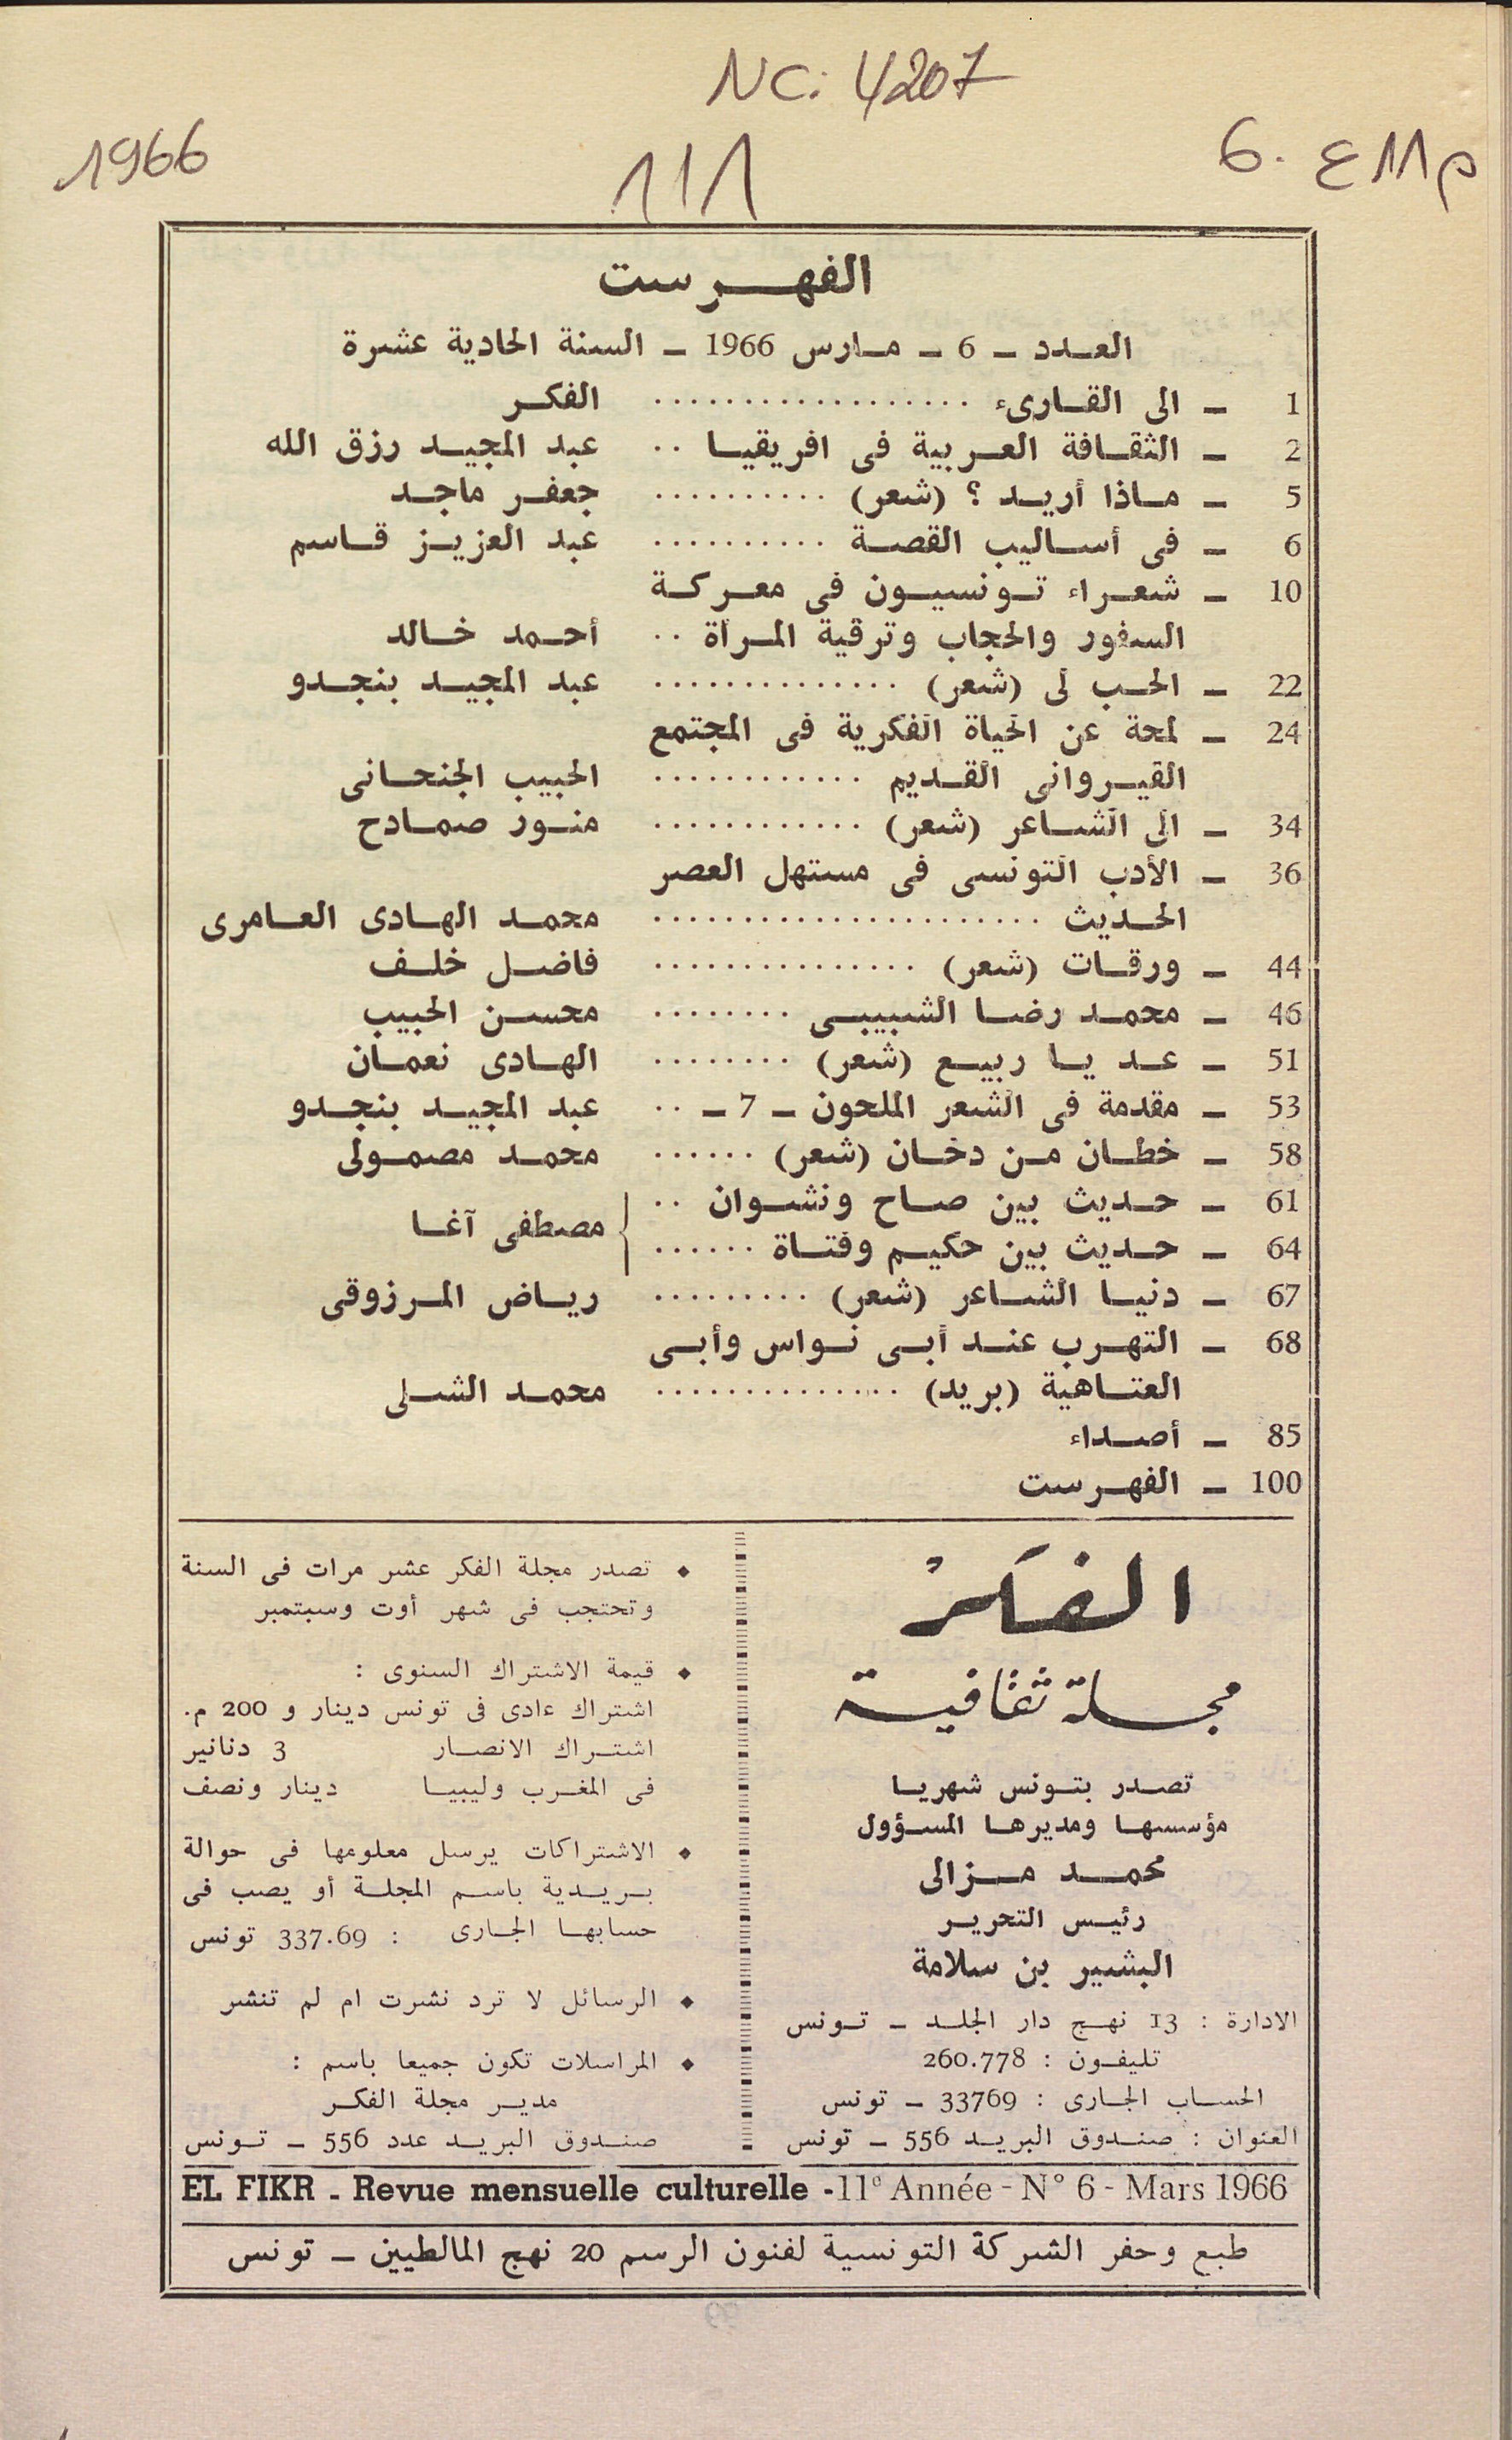 NC: 4207
1966
111
م 11 ع 6.
الفهرست
العدد - 6 - مارس 1966 - السنة الحادية عشرة
1 - الى القارىء .................. الفكر
2 - الثقافة العربية فى افريقيا .. عبد المجيد رزق الله
5 - ماذا أريد ؟ (شعر) .......... جعفر ماجد
6 - فى أساليب القصة .......... عبد العزيز قاسم
10 - شعراء تونسيون فى معركة
السفور والحجاب وترقية المرأة .. أحمد خالد
22 - الحب لى (شعر) .............. عبد المجيد بنجدو
24 - لمحة عن الحياة الفكرية فى المجتمع
القيروانى القديم ............ الحبيب الجنحانى
34 - الى الشاعر (شعر) ............ منور صمادح
36 - الأدب التونسى فى مستهل العصر
الحديث ...................... محمد الهادى العامرى
44 - ورقات (شعر) ............... فاضل خلف
46 - محمد رضا الشبيبى ........ محسن الحبيب
51 - عد يا ربيع (شعر) ........ الهادى نعمان
53 - مقدمة فى الشعر الملحون - 7 - .. عبد المجيد بنجدو
58 - خطان من دخان (شعر) ...... محمد مصمولى
61 - حديث بين صاح ونشوان ..
مصطفى آغا
64 - حديث بين حكيم وفتاة ......
67 - دنيا الشاعر (شعر) ......... رياض المرزوقى
68 - التهرب عند أبى نواس وأبى
العتاهية (بريد) .............. محمد الشلى
85 - أصداء
100 - الفهرست
الفكر
مجلة ثقافية
تصدر بتونس شهريا
مؤسسها ومديرها المسؤول
محمد مزالى
رئيس التحرير
البشير بن سلامة
الادارة : 13 نهج دار الجلد - تونس
تليفون : 260.778
الحساب الجارى : 33769 - تونس
العنوان : صندوق البريد 556 - تونس
♦ تصدر مجلة الفكر عشر مرات فى السنة
وتحتجب فى شهر أوت وسبتمبر
♦ قيمة الاشتراك السنوى :
اشتراك عادى فى تونس دينار و 200 م.
اشتراك الانصار 3 دنانير
فى المغرب وليبيا دينار ونصف
♦ الاشتراكات يرسل معلومها فى حوالة
بريدية باسم المجلة أو يصب فى
حسابها الجارى : 337.69 تونس
♦ الرسائل لا ترد نشرت ام لم تنشر
♦ المراسلات تكون جميعا باسم :
مدير مجلة الفكر
صندوق البريد عدد 556 - تونس
EL FIKR - Revue mensuelle culturelle - 11e Année - N° 6 - Mars 1966
طبع وحفر الشركة التونسية لفنون الرسم 20 نهج المالطيين - تونس